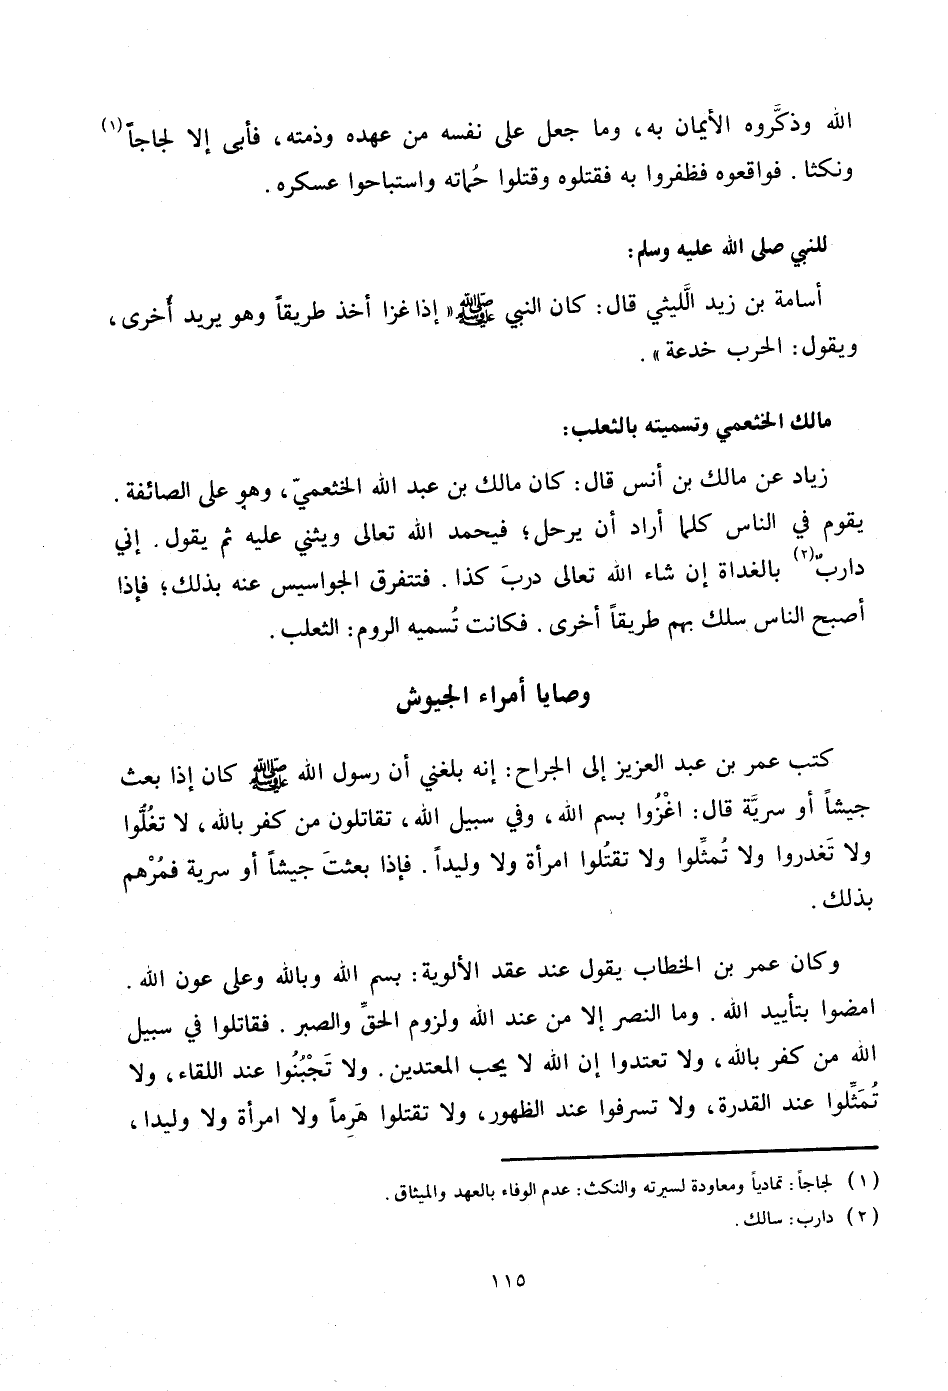 الله وذكَّروه الأيمان به، وما جعل على نفسه من عهده وذمته، فأبى إلا لجاجاً(١)
ونكثا. فواقعوه فظفروا به فقتلوه وقتلوا حُماته واستباحوا عسكره.
للنبي صلى الله عليه وسلم:
أسامة بن زيد الَّليثي قال: كان النبي ﷺ « إذا غزا أخذ طريقاً وهو يريد أُخرى،
ويقول: الحرب خدعة ».
مالك الخثعمي وتسميته بالثعلب:
زياد عن مالك بن أنس قال: كان مالك بن عبد الله الخثعميّ، وهو على الصائفة.
يقوم في الناس كلما أراد أن يرحل؛ فيحمد الله تعالى ويثني عليه ثم يقول. إني
داربٌ(٢) بالغداة إن شاء الله تعالى دربَ كذا. فتتفرق الجواسيس عنه بذلك؛ فإذا
أصبح الناس سلك بهم طريقاً أخرى. فكانت تُسميه الروم: الثعلب.
وصايا أمراء الجيوش
كتب عمر بن عبد العزيز إلى الجراح: إنه بلغني أن رسول الله ﷺ كان إذا بعث
جيشاً أو سريَّة قال: اغْزُوا بسم الله، وفي سبيل الله، تقاتلون من كفر بالله، لا تغُلُّوا
ولا تَغدروا ولا تُمثِّلوا ولا تقتُلوا امرأة ولا وليداً. فإذا بعثتَ جيشاً أو سرية فمُرْهم
بذلك.
وكان عمر بن الخطاب يقول عند عقد الألوية: بسم الله وبالله وعلى عون الله.
امضوا بتأييد الله. وما النصر إلا من عند الله ولزوم الحقِّ والصبر. فقاتلوا في سبيل
الله من كفر بالله، ولا تعتدوا إن الله لا يحب المعتدين. ولا تَجْبُنُوا عند اللقاء، ولا
تُمَثِّلوا عند القدرة، ولا تسرفوا عند الظهور، ولا تقتلوا هَرِماً ولا امرأة ولا وليدا،
(١) لجاجاً: تمادياً ومعاودة لسيرته والنكث: عدم الوفاء بالعهد والميثاق.
(٢) دارب: سالك.
١١٥